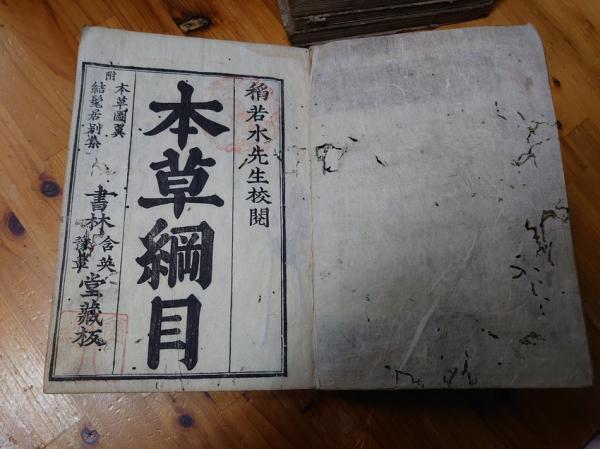 稲若水先生校閲
本草綱目
附
本草圖翼
結髦居別集
書林
含英
豫章
堂藏板